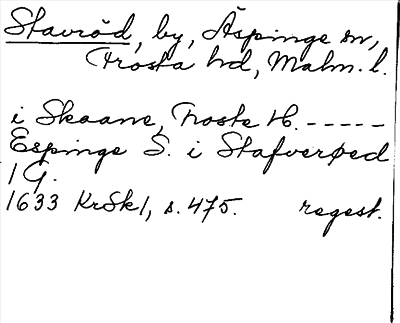 Stavröd, by, Äspinge sn,
Frosta hd, Malm. l.
i Skaane, Froste H. -----
Espinge S. i Stafverøed
1 G.
1633 KrSk1, s. 475. regest.